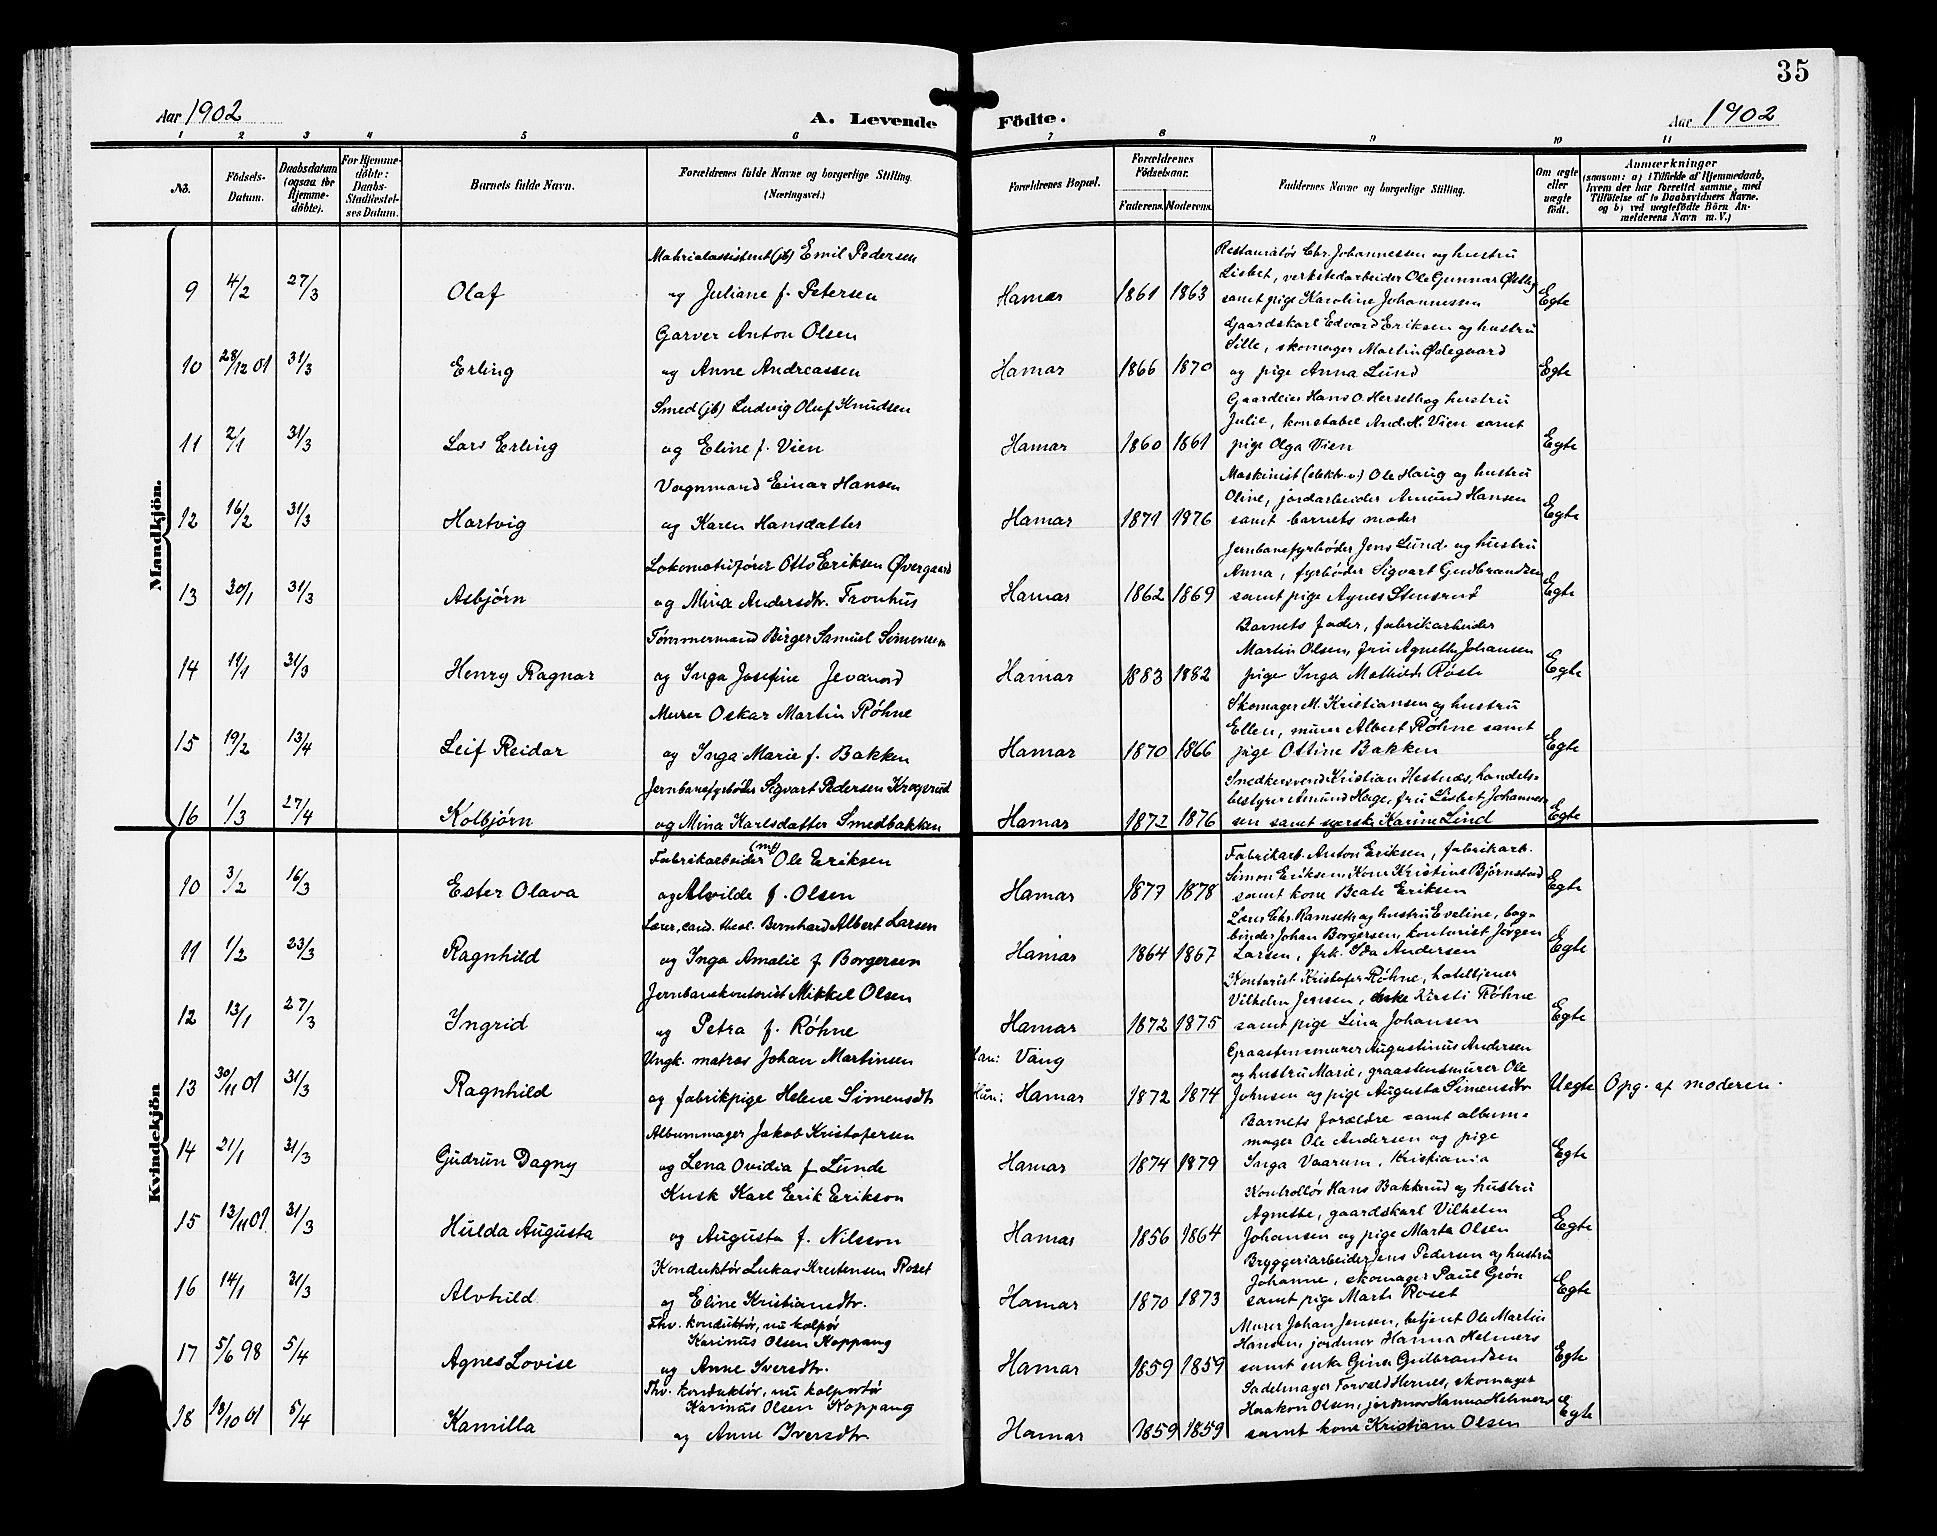 35
Aar 1902
A. Levende Födte.
Aar 1902
1 2 3 4 5 6 7 8 9 10 11
No.
Födsels-Datum.
Daabsdatum (ogsaa for Hjemme-döbte).
For Hjemme-döbte: Daabs-Stadfæstel-ses Datum.
Barnets fulde Navn.
Forældrenes fulde Navne og borgerlige Stilling. (Næringsvei.)
Forældrenes Bopæl.
Forældrenes Födselsaar.
Faderens. Moderens.
Faddernes Navne og borgerlige Stilling.
Om ægte eller uægte födt.
Anmærkninger
(saasom: a) i Tilfælde af Hjemmedaab,
hvem der har forrettet samme, med
Tilföielse af to Daabsvidners Navne.
og b) ved uægtefödte Börn An-
melderens Navn m. V.)
Mandkjön.
9 4/2 27/3 Olaf
Materialassistent (jb) Emil Pedersen
og Juliane f. Petersen
Hamar 1861 1863
Restauratör Chr. Johannessen og hustru
Lisbet, verkstedarbeider Ole Gunnar Østby
samt pige Karoline Johannessen
Egte
10 28/12 01 31/3 Erling
Garver Anton Olsen
og Anne Andreassen
Hamar 1866 1870
Gaardskarl Edvard Eriksen og hustru
Sille, skomager Martin Ødegaard
og pige Anna Lund
Egte
11 2/1 31/3 Lars Erling
Smed (jb) Ludvig Oluf Knudsen
og Eline f. Vien
Hamar 1860 1861
Gaardeier Hans O. Herseth og hustru
Julie, konstabel And. H. Vien samt
pige Olga Vien
Egte
12 16/2 31/3 Hartvig
Vognmand Einar Hansen
og Karen Hansdatter
Hamar 1871 1876
Maskinist (elektr. v.) Ole Haug og hustru
Oline, jordarbeider Amund Hansen
samt barnets moder
Egte
13 30/1 31/3 Asbjörn
Lokomotivförer Otto Eriksen Øvergaard
og Mina Andersdtr. Fronhus
Hamar 1862 1869
Jernbanefyrböder Jens Lund og hustru
Anna, fyrböder Sigvart Gudbrandsen
samt pige Agnes Stensrud
Egte
14 11/1 31/3 Henry Ragnar
Tömmermand Birger Samuel Simensen
og Inga Josefine Jevanord
Hamar 1883 1882
Barnets fader, fabrikarbeider
Martin Olsen, fru Agnethe Johansen
pige Inga Mathilde Röste
Egte
15 19/2 13/4 Leif Reidar
Murer Oskar Martin Röhne
og Inga Marie f. Bakken
Hamar 1870 1866
Skomager M. Kristiansen og hustru
Ellen, murer Albert Röhne samt
pige Ottine Bakken
Egte
16 1/3 27/4 Kolbjörn
Jernbanefyrböder Sigvart Pedersen Krogerud
og Mina Karlsdatter Smedbakken
Hamar 1872 1876
Smedkersvend Kristian Hestnæs, handels-
bestyrer Amund Hage, fru Lisbet Johannes-
sen samt syerske Karine Lind
Egte
Kvindekjön
10 3/2 16/3 Ester Olava
Fabrikarbeider (mf) Ole Eriksen
og Alvilde f. Olsen
Hamar 1877 1878
Fabrikarb. Anton Eriksen, fabrikarb.
Simon Eriksen, Kone Kristine Björnstad
samt kone Beate Eriksen
Egte
11 1/2 23/3 Ragnhild
Lærer, cand. theol. Bernhard Albert Larsen
og Inga Amalie f. Borgersen
Hamar 1864 1867
Lærer Chr. Ramseth og hustru Eveline, bog-
binder Johan Borgersen, kontorist Jörgen
Larsen, frk. Ida Andersen
Egte
12 13/1 27/3 Ingrid
Jernbanekontorist Mikkel Olsen
og Petra f. Röhne
Hamar 1872 1875
Kontorist Kristofer Röhne, hoteltjener
Vilhelm Jensen, enke Kirsti Röhne
samt pige Lina Johansen
Egte
13 30/11 01 31/3 Ragnhild
Ungk. matros Johan Martinsen
og fabrikpige Helene Simensdtr
Han: Vang
Hun: Hamar 1872 1874
Graastensmurer Augustinus Andersen
og hustru Marie, graastensmurer Ole
Johnsen og pige Augusta Simensdtr
Uegte Opg. af moderen.
14 21/1 31/3 Gudrun Dagny
Albummager Jakob Kristofersen
og Lena Ovidia f. Lunde
Hamar 1874 1879
Barnets forældre samt album-
mager Ole Andersen og pige
Inga Vaarum, Kristiania
Egte
15 13/11 01. 31/3 Hulda Augusta
Kusk Karl Erik Erikson
og Augusta f. Nilsson
Hamar 1856 1864
Kontrollör Hans Bakkerud og hustru
Agnethe, gaardskarl Vilhelm
Johansen og pige Marta Olsen
Egte
16 14/1 31/3 Alvhild
Konduktör Lukas Krestensen Roset
og Eline Kristiansdtr.
Hamar 1870 1873
Bryggeriarbeider Jens Pedersen og hustru
Johanne, skomager Paul Grön
samt pige Marth Roset
Egte
17 5/6 98 5/4 Agnes Lovise
Fhv. konduktör, nu kolpör
Karinus Olsen Koppang
og Anne Iversdtr.
Hamar 1859 1859
Murer Johan Jensen, betjent Ole Martin
Hansen, jordmor Hanna Helmers
samt enke Gina Gulbrandsen
Egte
18 18/10 01 5/4 Kamilla
Fhv. konduktör, nu kolportör
Karinus Olsen Koppang
og Anne Iversdtr
Hamar 1859 1859
Sadelmager Torvald Hernes, skomager
Haakon Olsen, jordmor Hanna Helmers
samt kone Kristiane Olsen
Egte